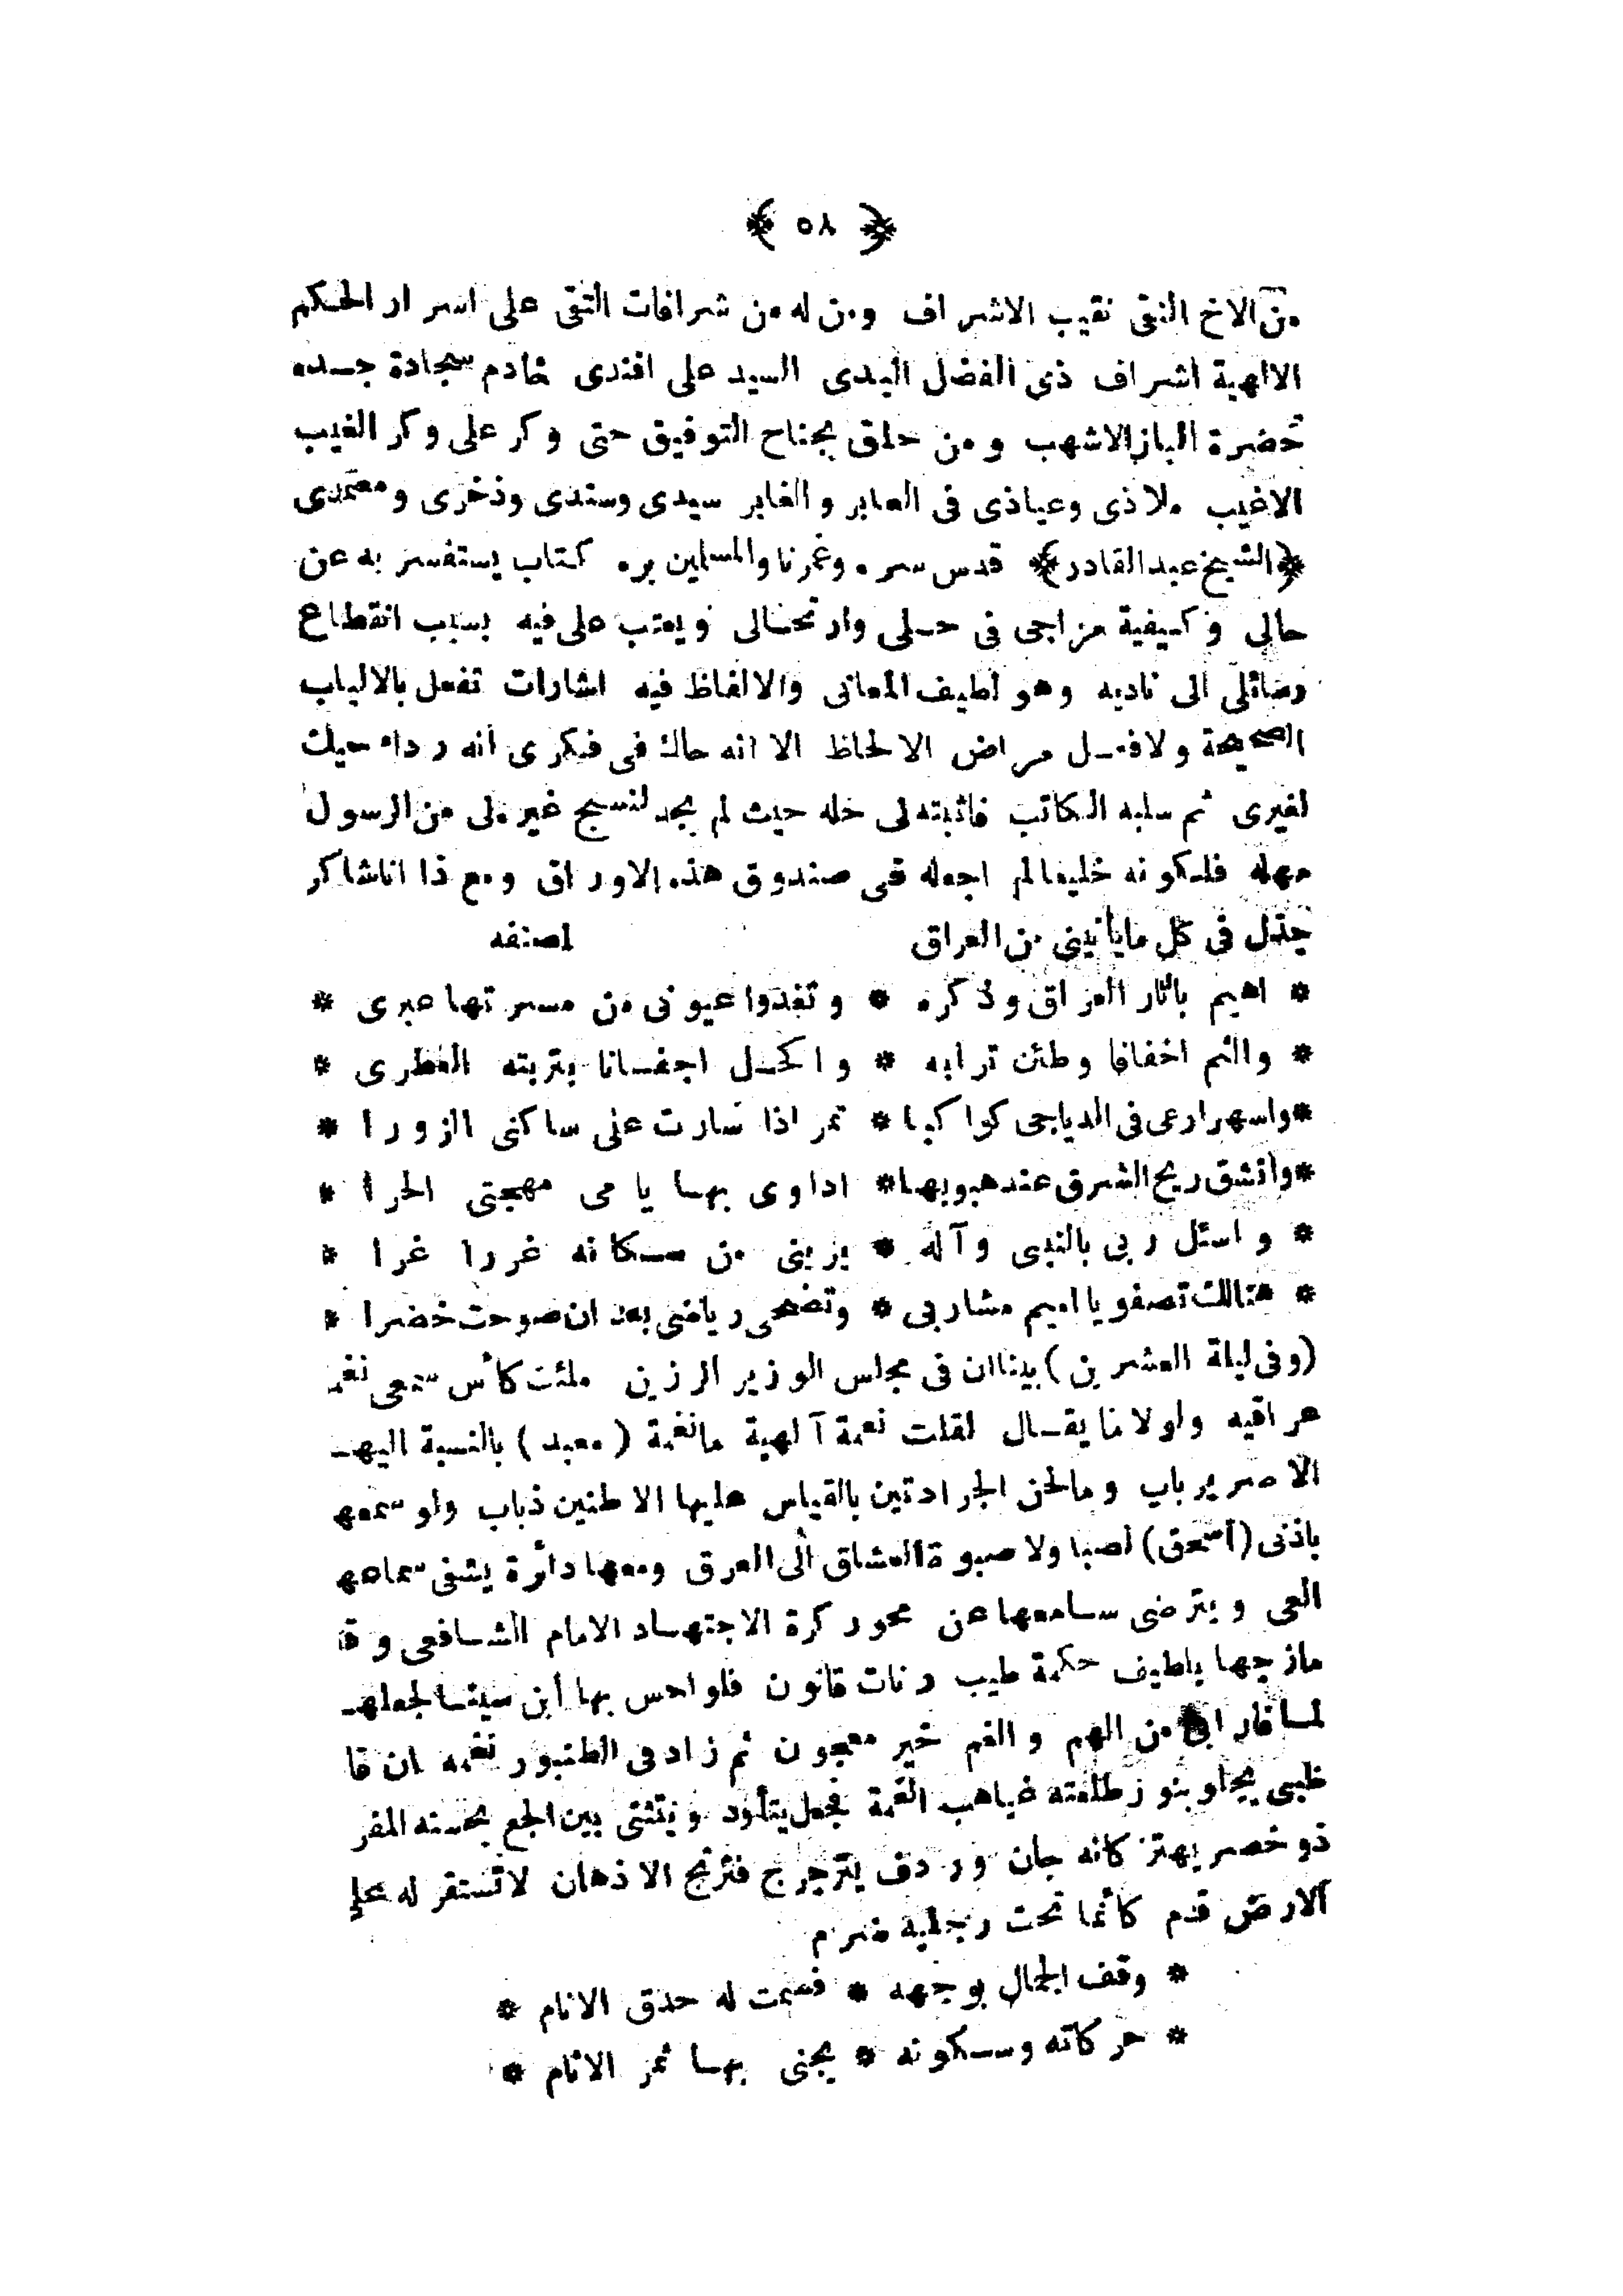 ﴿ ٥٨ ﴾
من الاخ النقى نقيب الاشراف ومن له من شرافات التقى على اسرار الحكم
الالهية اشراف ذى الفضل البدى السيد على افندى خادم سجادة جده
حضرة الباز الاشهب ومن حلق بجناح التوفيق حتى وكر على وكر الغيب
الاغيب ملاذى وعياذى فى العابر والغابر سيدى وسندى وذخرى ومعتمدى
﴿الشيخ عبد القادر﴾ قدس سره وغمرنا والمسلمين بره كتاب يستفسر به عن
حالى وكيفية مزاجى فى حلى وارتحالى ويعتب على فيه بسبب انقطاع
رسائلى الى ناديه وهو لطيف المعانى والالفاظ فيه اشارات تفعل بالالباب
الصحيحة ولا فعل مراض الالحاظ الا انه حاك فى فكرى انه رداء حيك
لغيرى ثم سلبه الكاتب فاثبته لى خله حيث لم يجد لنسج غيره لى من الرسول
مهله فلكونه خليعا لم اجعله فى صندوق هذه الاوراق ومع ذا انا شاكر
جذل فى كل ما يأتينى من العراق لمصنفه
* اهيم باثار العراق وذكره * وتغدوا عيونى من مسرتها عبرى *
* والثم اخفافا وطئن ترابه * واكحل اجفانا بتربته العطرى *
* واسهر ارعى فى الدياجى كواكبا * تمر اذا سارت على ساكنى الزورا *
* وانشق ريح الشرق عند هبوبها * اداوى بها يا مى مهجتى الحرا *
* واسئل ربى بالنبى وآله * يرينى من سكانه غررا غرا *
* هنالك تصفو يا اميم مشاربى * وتضحى رياضى بعد ان صوحت خضرا *
(وفى ليلة العشرين) بينا ان فى مجلس الوزير الرزين ملئت كأس سمعى نغمـ
عراقيه ولولا ما يقال لقلت نعمة آلهية ما نغمة (معبد) بالنسبة اليهـ
الا صرير باب وما لحن الجرادتين بالقياس عليها الا طنين ذباب ولو سمعهـ
باذنى (اسحق) لصبا ولا صبوة العشاق الى العرق ومعها دائرة يشفى سماعهـ
العى ويترضى سامعها عن محور كرة الاجتهاد الامام الشافعى وقـ
مازجها بلطيف حكمة طيب رنات قانون فلو احس بها ابن سينا لجعلهـ
لمسافار من الهم والغم خير معجون ثم زاد فى الطنبور نغمه ان قا
ظبى يجلو بنور طلعته غياهب الغمة فجعل يتأود ويتثنى بين الجمع بحسنه المفر
ذو خصر يهتز كانه جان وردف يترجرج فترتج الاذهان لا تستقر له على
الارض قدم كأنما تحت رجليه ضرم
* وقف الجمال بوجهه * فسمت له حدق الانام *
* حركاته وسكونه * يجنى بها ثمر الاثام *